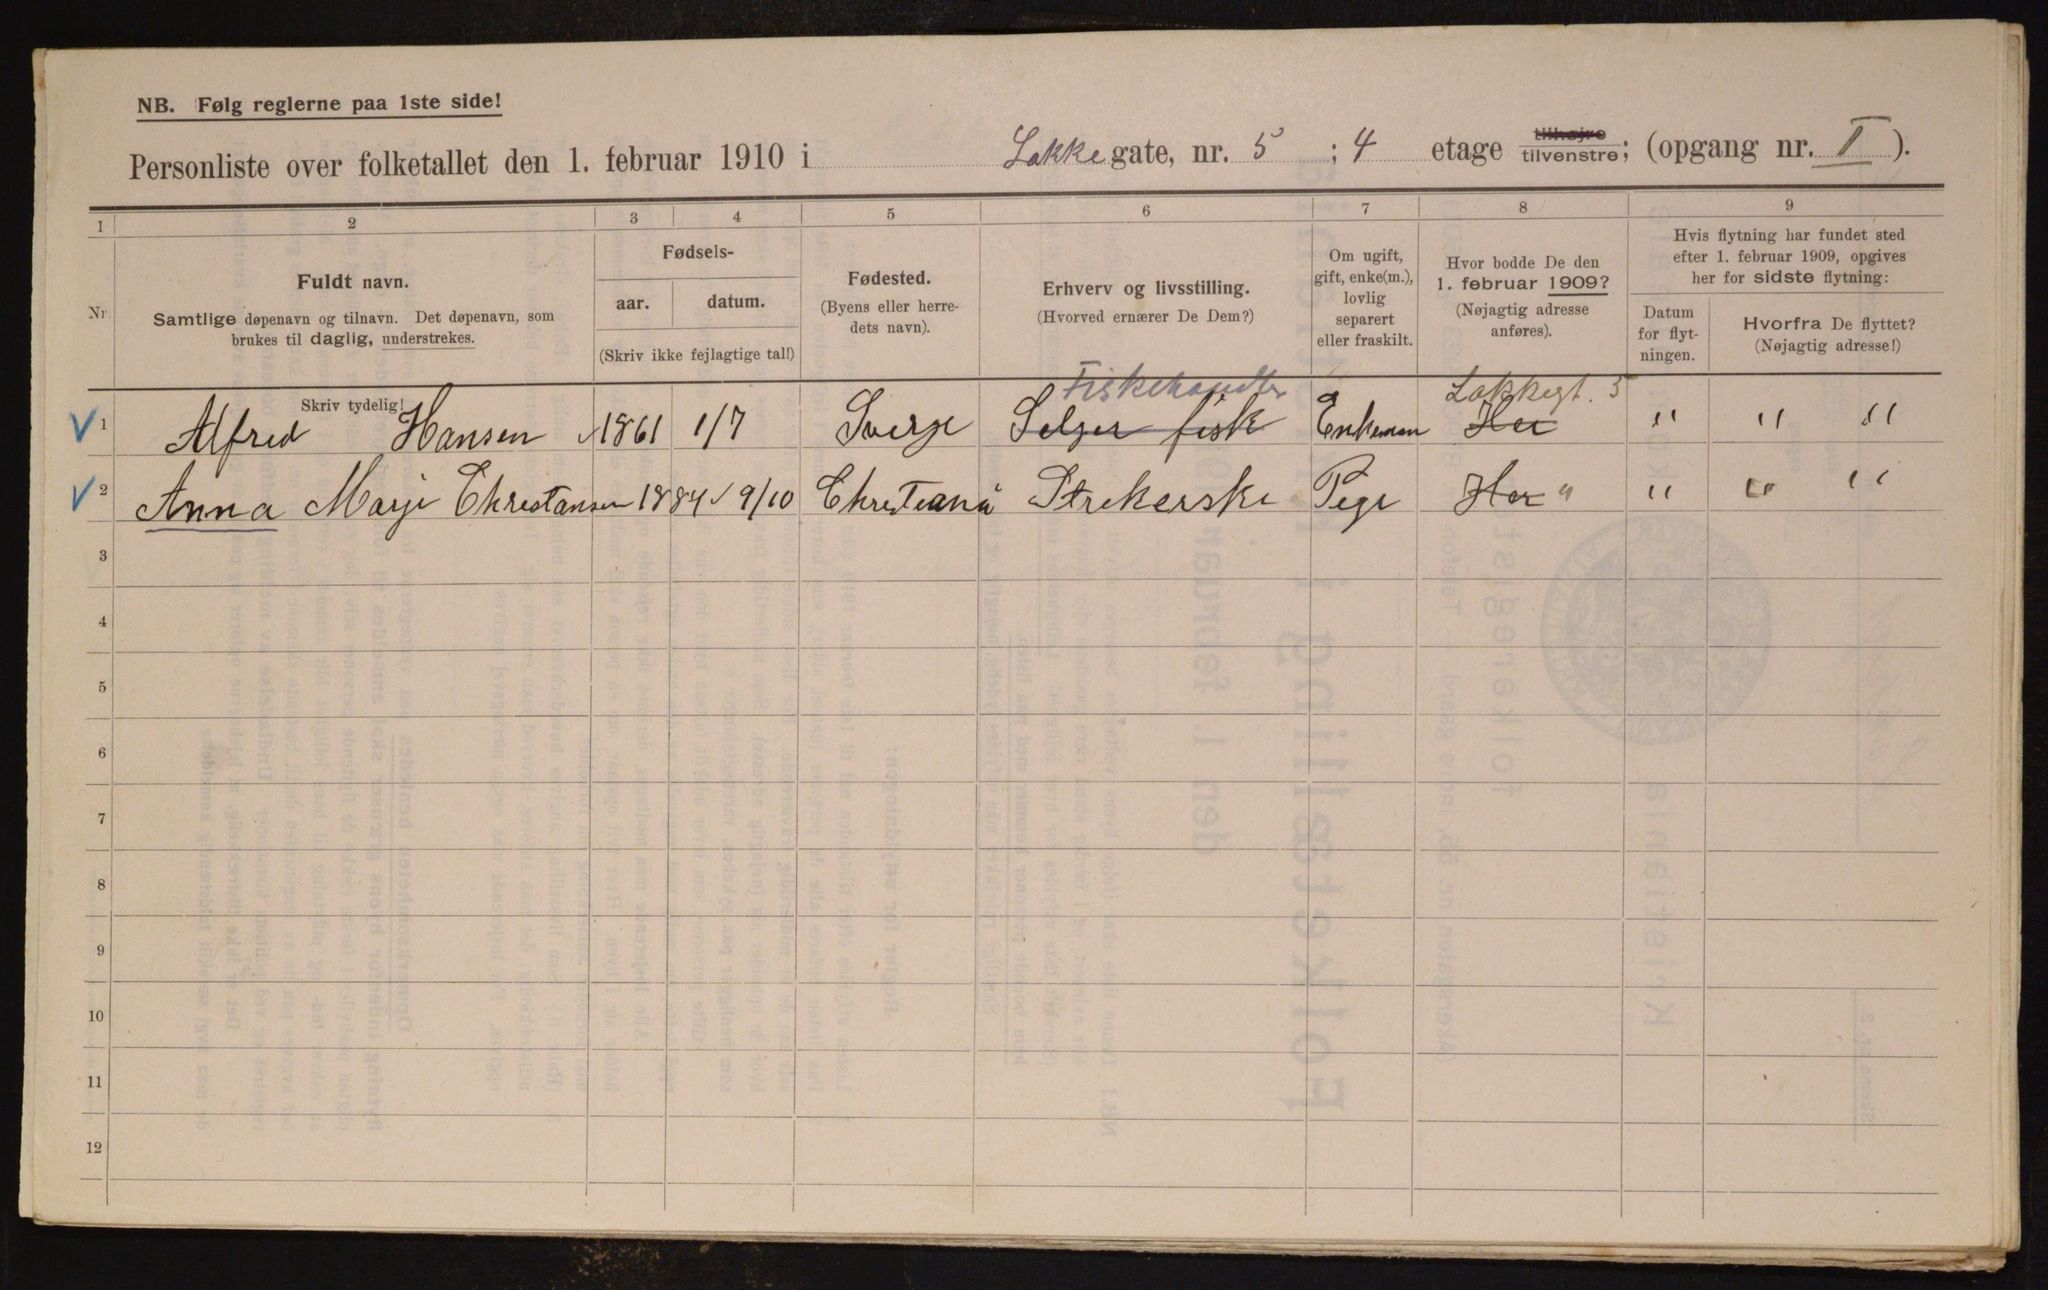 NB. Følg reglerne paa 1ste side!
Personliste over folketallet den 1. februar 1910 i Lakkegate, nr. 5 ; 4 etage tilhøjre tilvenstre; (opgang nr. I ).
1 2 3 4 5 6 7 8 9
Nr.
Fuldt navn.
Samtlige døpenavn og tilnavn. Det døpenavn, som
brukes til daglig, understrekes.
Fødsels-
aar. datum.
(Skriv ikke fejlagtige tal!)
Fødested.
(Byens eller herre-
dets navn).
Erhverv og livsstilling.
(Hvorved ernærer De Dem?)
Om ugift,
gift, enke(m.),
lovlig
separert
eller fraskilt.
Hvor bodde De den
1. februar 1909?
(Nøjagtig adresse
anføres).
Hvis flytning har fundet sted
efter 1. februar 1909, opgives
her for sidste flytning:
Datum
for flyt-
ningen.
Hvorfra De flyttet?
(Nøjagtig adresse!)
Skriv tydelig!
Fiskehandler Lakkegt. 5
1 Alfred Hansen 1861 1/7 Sverje Selger fisk Enkeman Her " " "
2 Anna Marje Chrestansen 1884 9/10 Chresteania Strekerske Pege Her " " " "
3
4
5
6
7
8
9
10
11
12